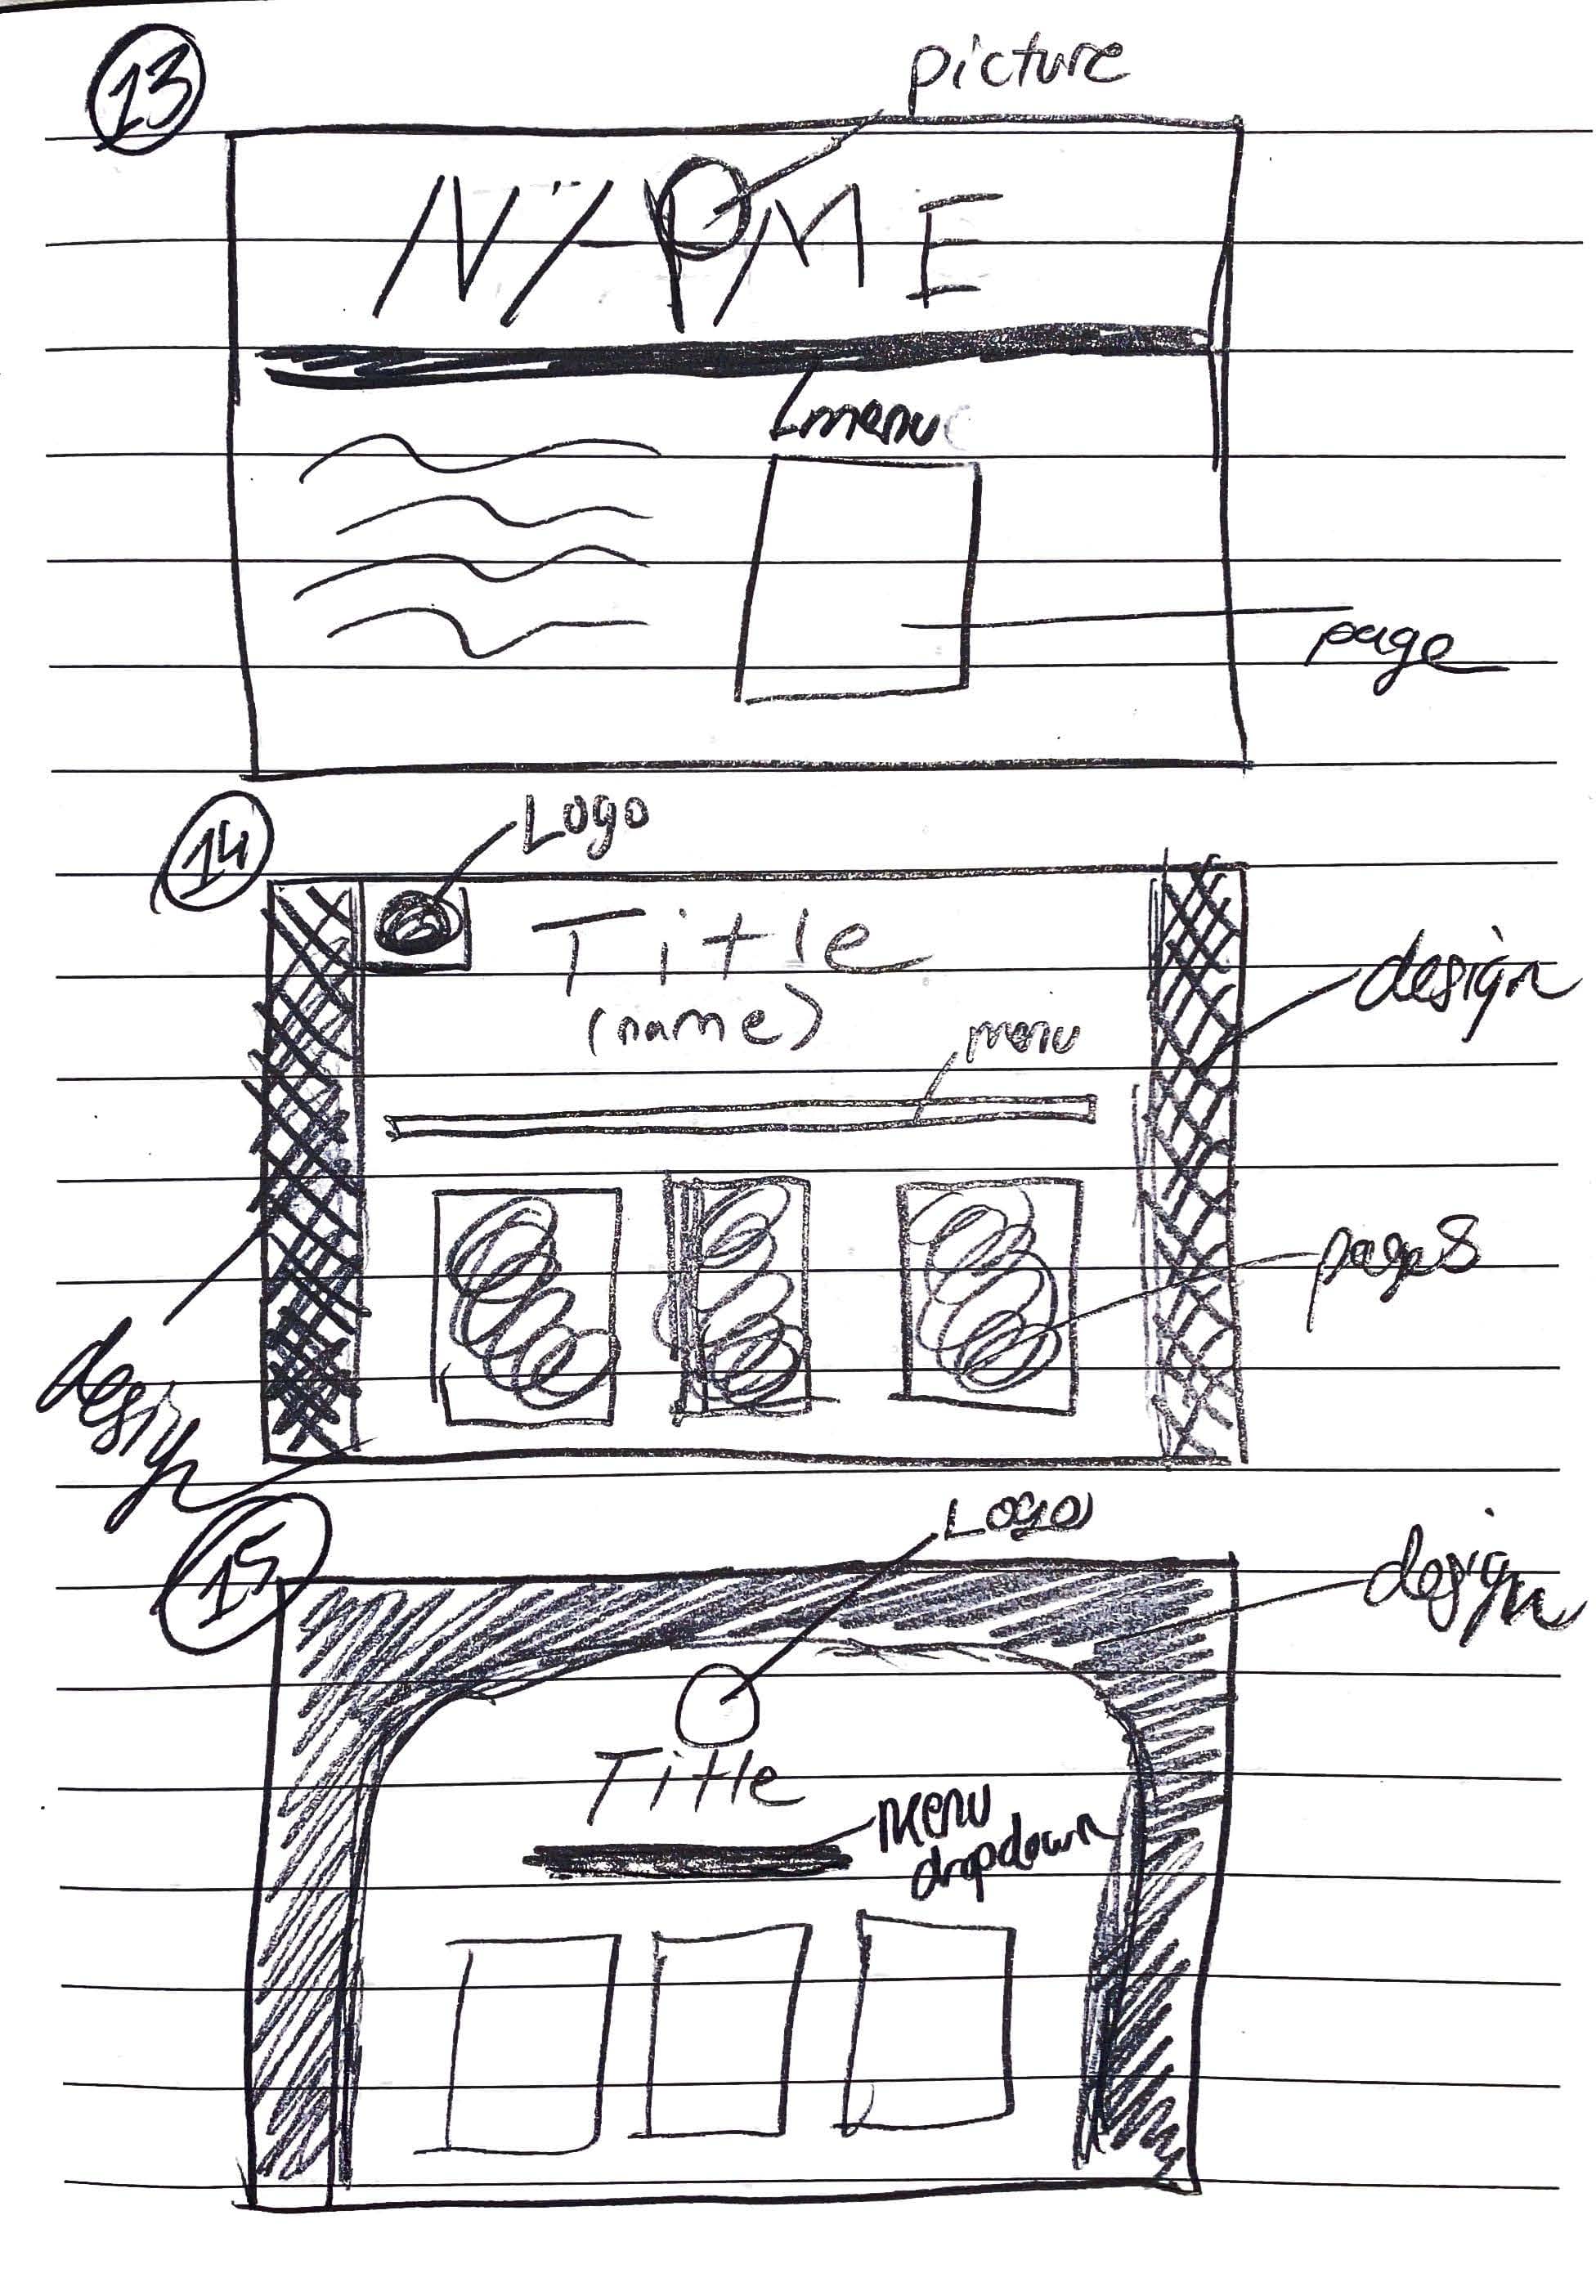 13
picture
NAME
menu
page
14
Logo
Title
(name)
menu
design
pages
design
15
Logo
design
Title
menu
dropdown